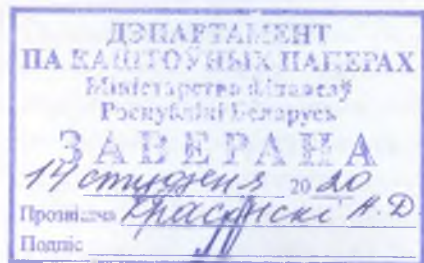 ДЭПАРТАМЕНТ
ПА КАШТОЎНЫХ ПАПЕРАХ
Міністэрства фінансаў
Рэспублікі Беларусь
ЗАВЕРАНА
14 студзеня 2020
Прозвішча Красінскі Н.Д.
Подпіс